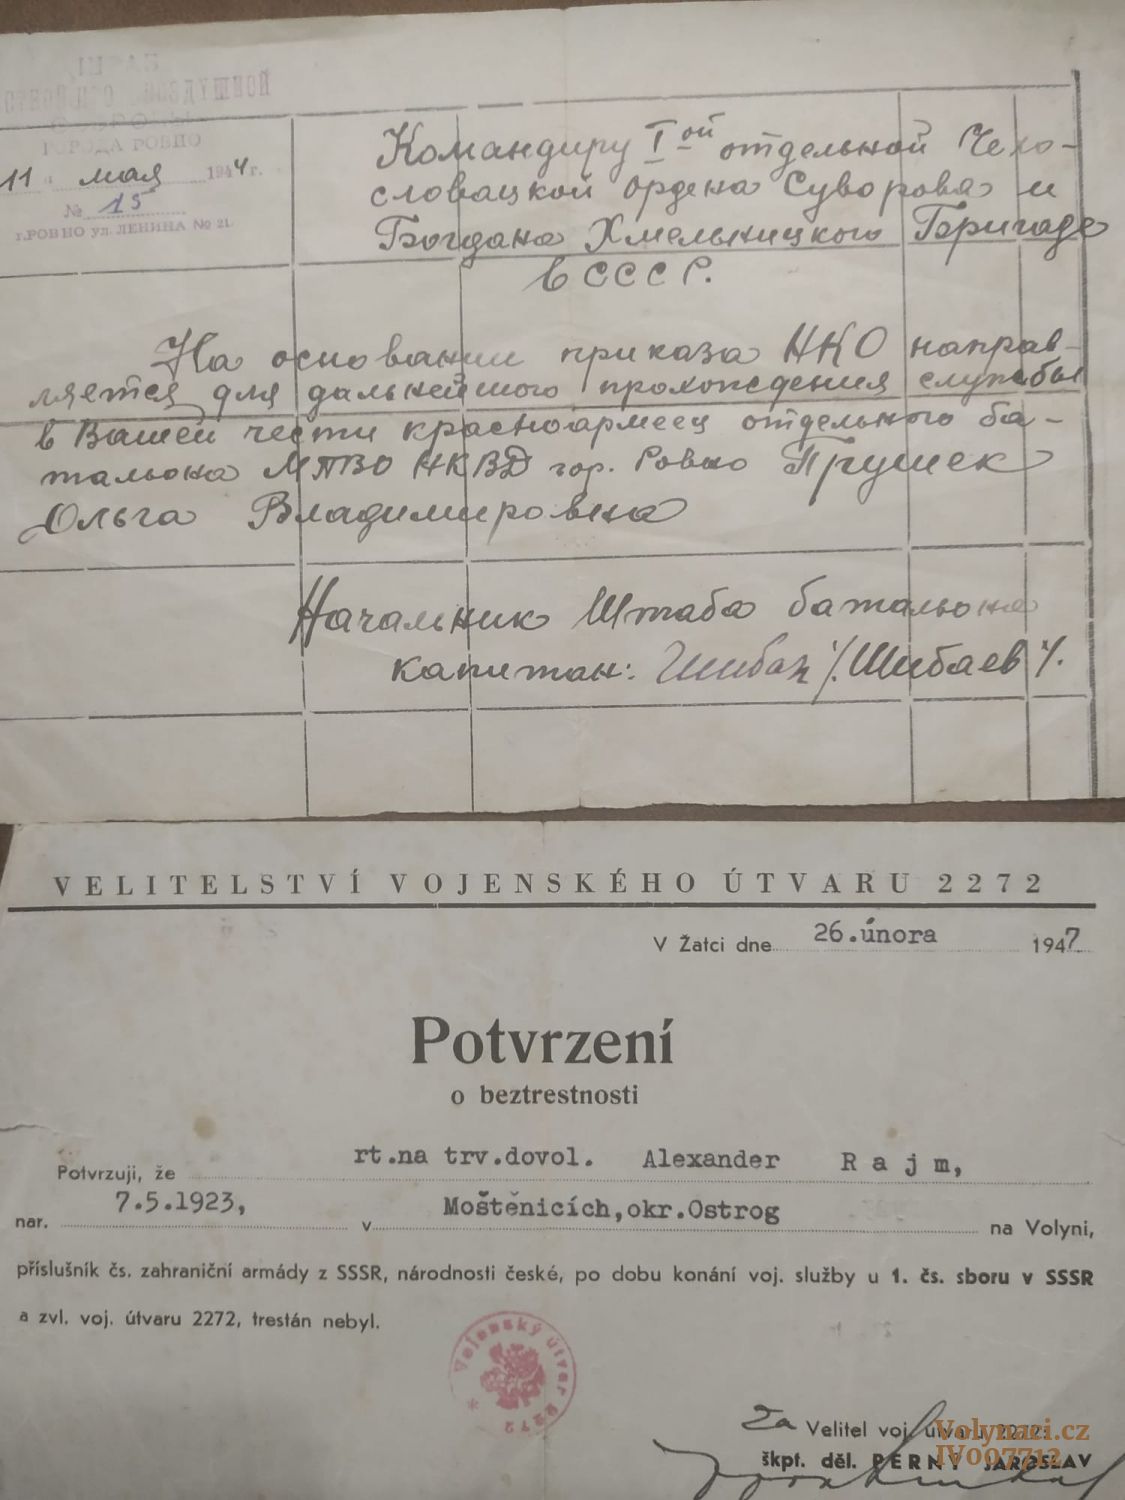 ШТАБ
ГОРОДА РОВНО
11 " мая 1944 г.
№ 15
г.РОВНО ул. ЛЕНИНА № 21
Командиру I ой отдельной Чехо-
словацкой ордена Суворова и
Богдана Хмельницкого Бригаде
в СССР.
На основании приказа НКО направ-
ляется для дальнейшого прохождения службы
в Вашей части красноармеец отдельного ба-
тальона МПВО НКВД гор. Ровно Прушек
Ольга Владимировна
Начальник Штаба батальона
капитан: /.Шибаев/.
VELITELSTVÍ VOJENSKÉHO ÚTVARU 2272
V Žatci dne 26.února 1947
Potvrzení
o beztrestnosti
Potvrzuji, že rt.na trv.dovol. Alexander Rajm,
nar. 7.5.1923, v Moštěnicích,okr.Ostrog na Volyni,
příslušník čs. zahraniční armády z SSSR, národnosti české, po dobu konání voj. služby u 1. čs. sboru v SSSR
a zvl. voj. útvaru 2272, trestán nebyl.
Vojenský útvar 2272
Za Velitel voj. útvaru 2272:
škpt. děl. PERNÝ JAROSLAV
Volynaci.cz
IV007712